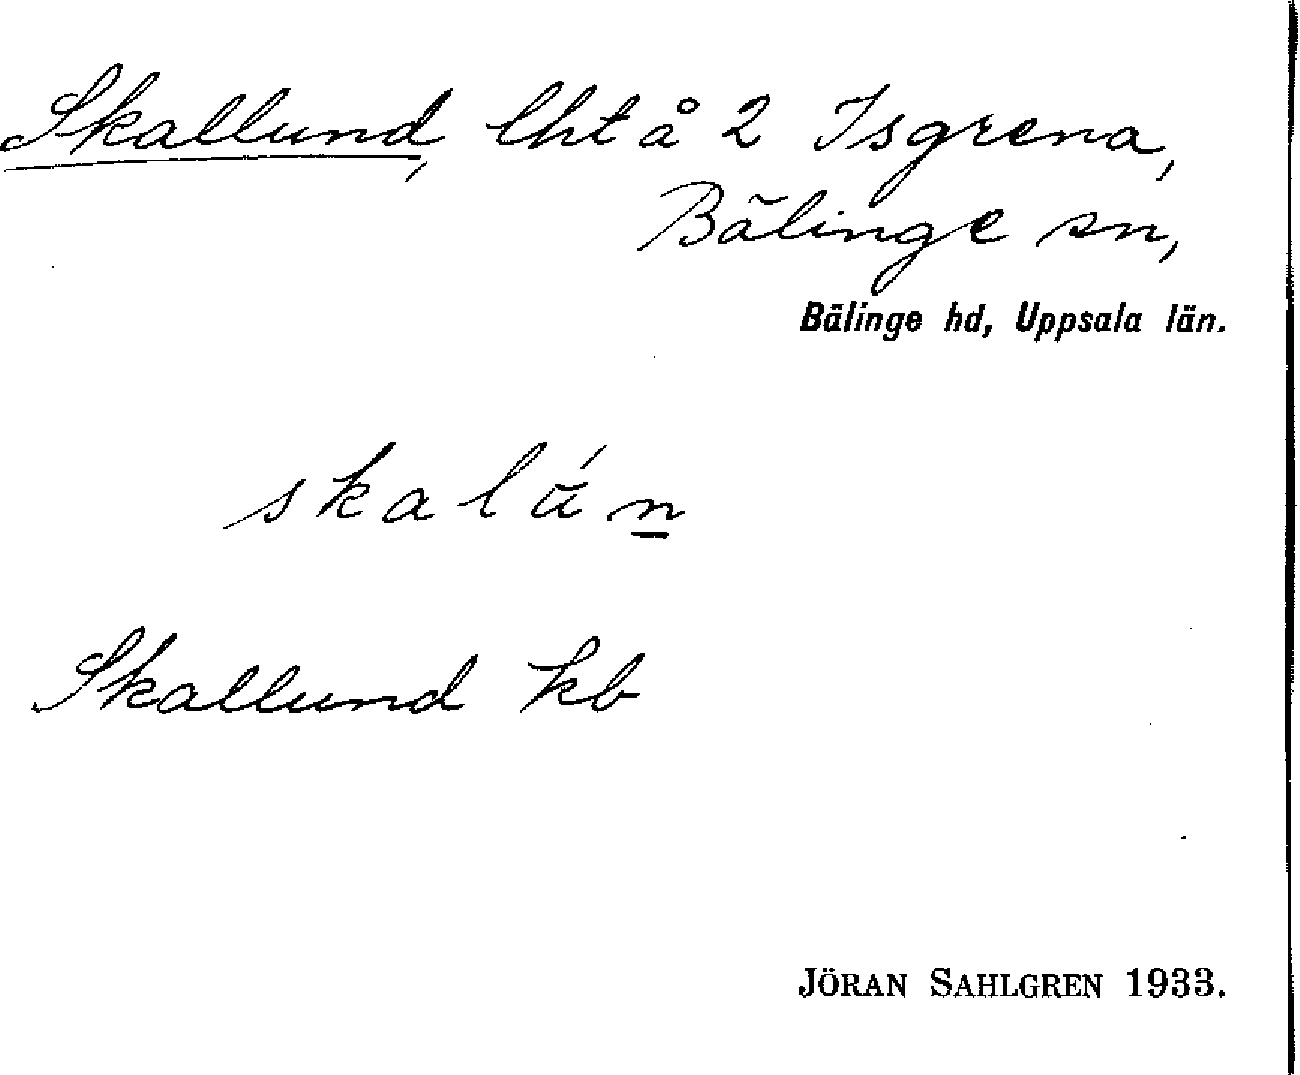 Skallund, lht å 2 Isgrena,
Bälinge sn,
Bälinge hd, Uppsala län.
skalún
Skallund kb
JÖRAN SAHLGREN 1933.